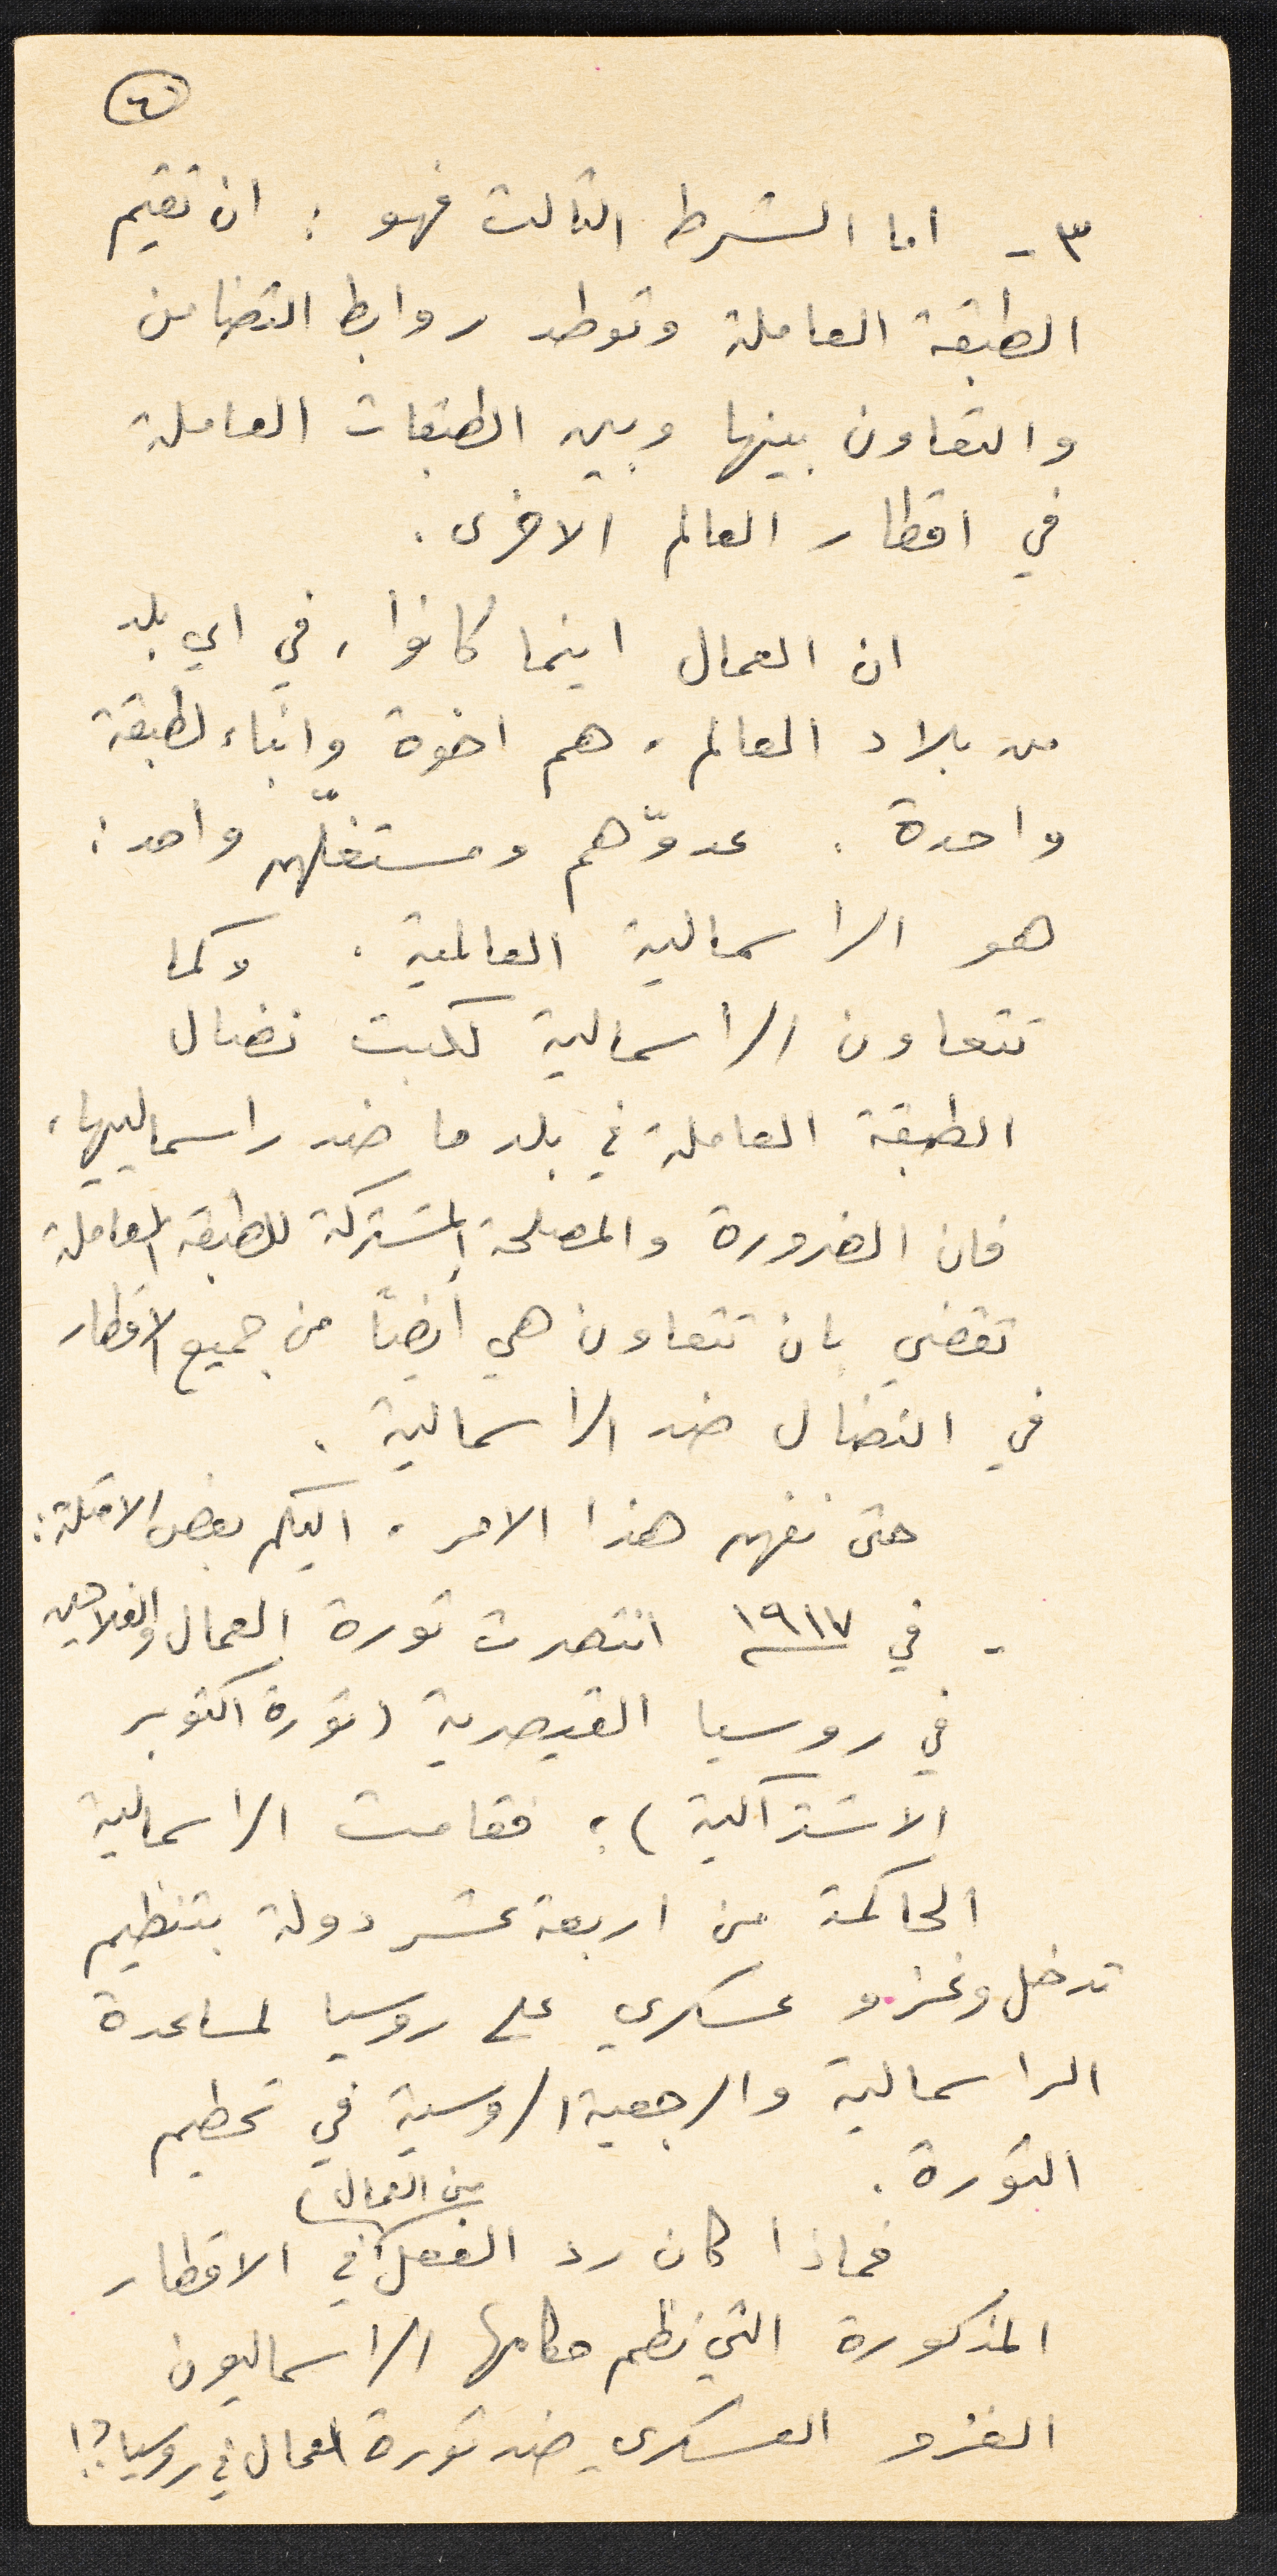 ٦
٣ - اما الشرط الثالث فهو : ان تقيم
الطبقة العاملة وتوطد روابط التضامن
والتعاون بينها وبين الطبقات العاملة
في اقطار العالم الاخرى .
ان العمال اينما كانوا ، في اي بلد
من بلاد العالم ، هم اخوة وابناء لطبقة
واحدة . عدوّهم ومستغلّهم واحد :
هو الراسمالية العالمية . وكما
تتعاون الراسمالية لكبت نضال
الطبقة العاملة في بلد ما ضد راسمالييها ،
فان الضرورة والمصلحة المشتركة للطبقة العاملة
تقضي بان تتعاون هي أيضاً من جميع الاقطار
في النضال ضد الراسمالية .
حتى نفهم هذا الامر ، اليكم بعض الامثلة :
- في ١٩١٧ انتصرت ثورة العمال والفلاحين
في روسيا القيصرية ( ثورة اكتوبر
الاشتراكية ) ؛ فقامت الراسمالية
الحاكمة من اربعة عشر دولة بتنظيم
تدخل وغزو عسكري على روسيا لمساعدة
الراسمالية والرجعية الروسية في تحطيم
الثورة .
فماذا كان رد الفعل من العمال في الاقطار
المذكورة التي نظم حكامها الراسماليون
الغزو العسكري ضد ثورة العمال في روسيا ؟!